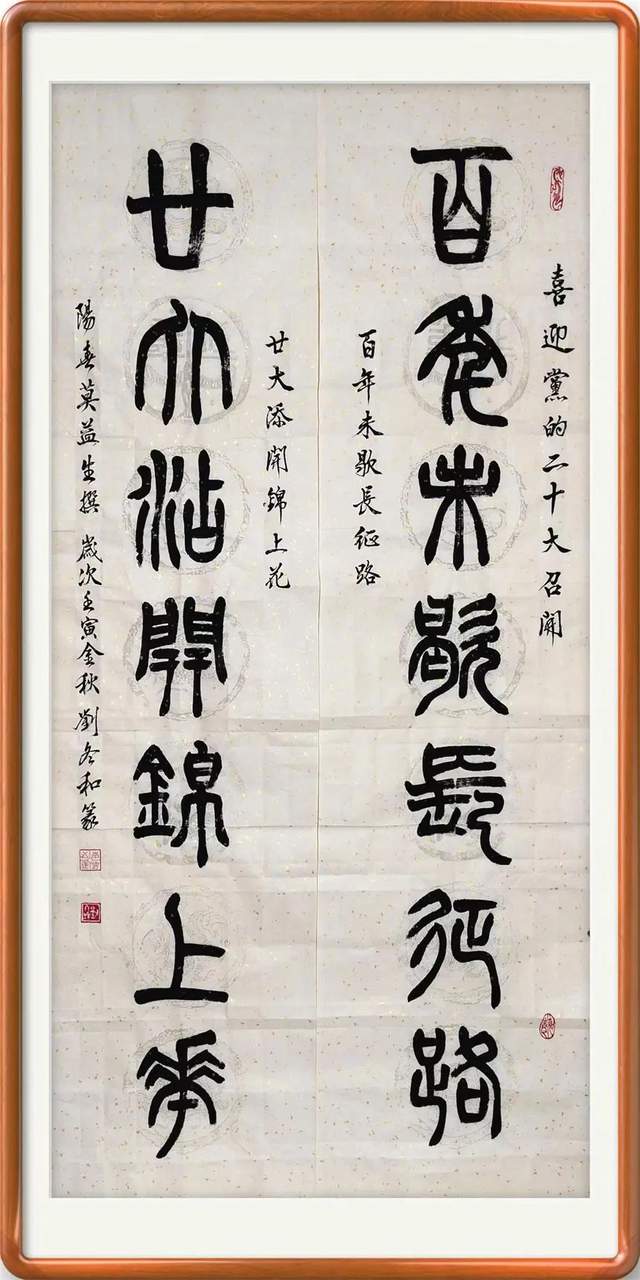 喜迎黨的二十大召開
百年未歇長征路
百年未歇長征路
廿大添開錦上花
廿大沾開錦上華
陽春莫益生撰 歲次壬寅金秋 劉冬和篆